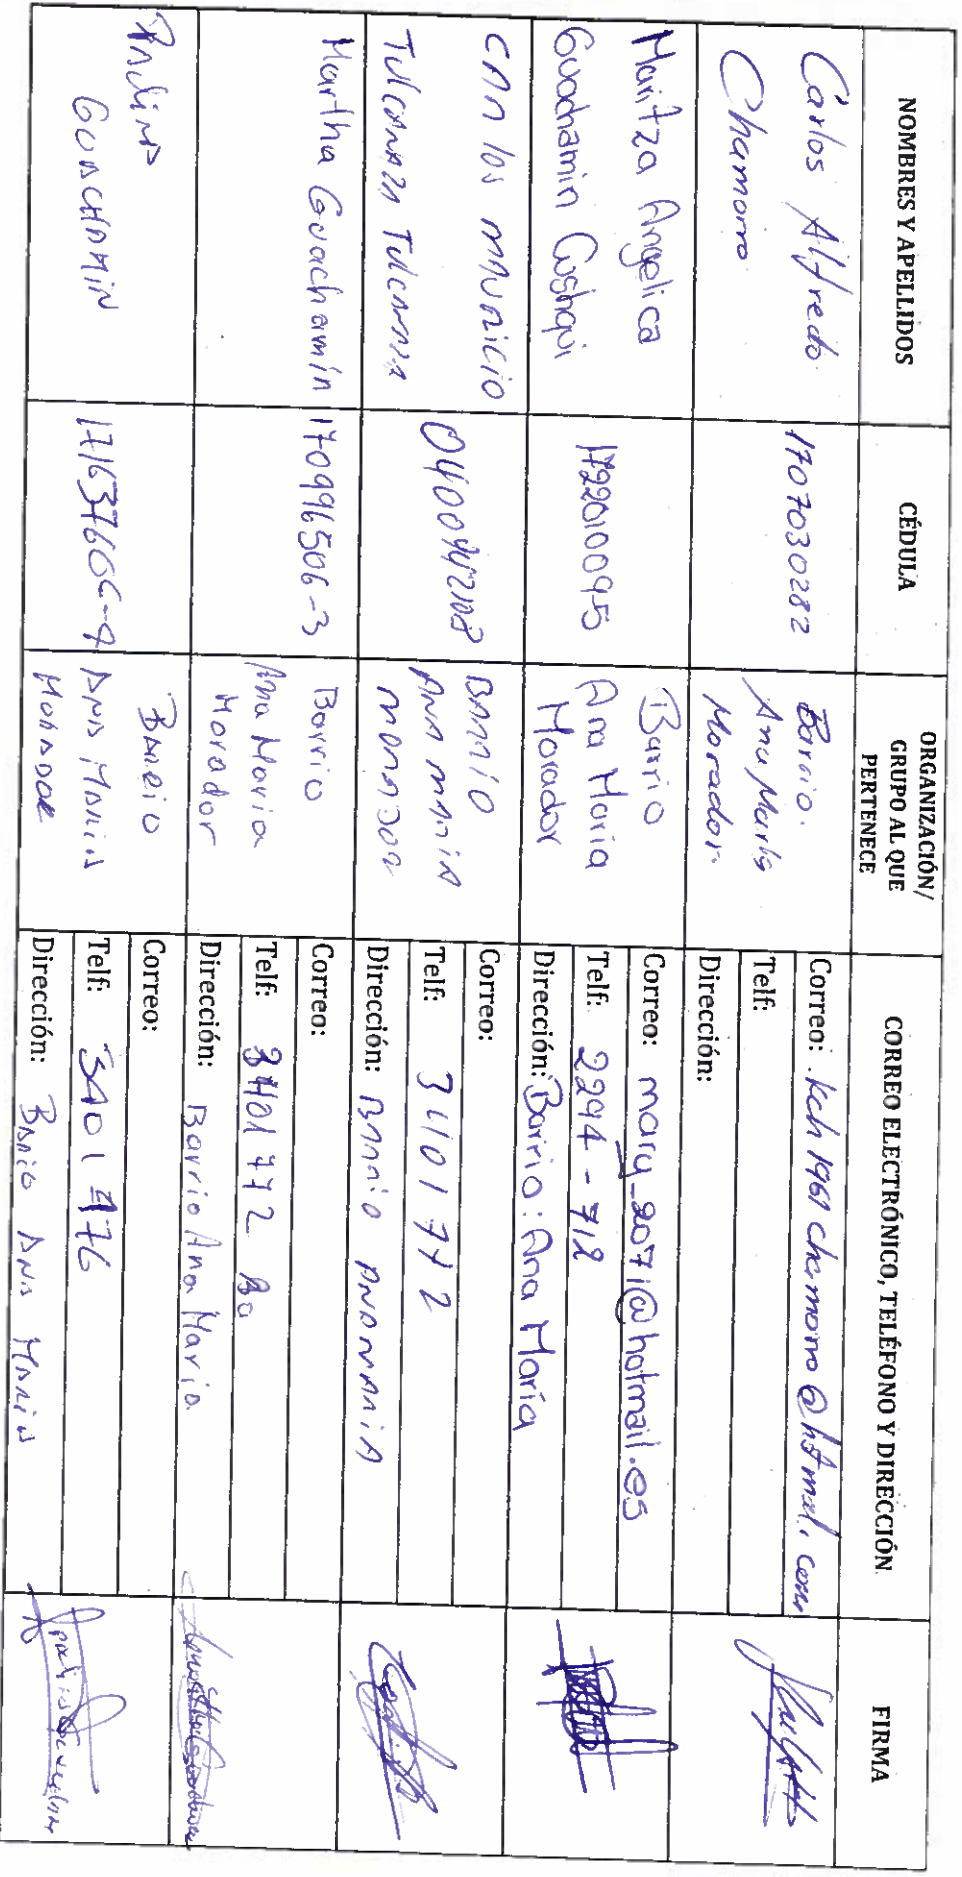 NOMBRES Y APELLIDOS
CÉDULA
ORGANIZACIÓN/
GRUPO AL QUE
PERTENECE
CORREO ELECTRÓNICO, TELÉFONO Y DIRECCIÓN
FIRMA
Carlos Alfredo
Chamorro
1707030282
Barrio.
Ana Maria
Morador.
Correo: kch1961chamorro@hotmail.com
Telf:
Dirección:
Maritza Angelica
Guachamin Cushqui
1722010095
Barrio
Ana Maria
Morador
Correo: mary_2071@hotmail.es
Telf: 2294-712
Dirección: Barrio: Ana María
CARLOS MAURICIO
TULCANAZA TULCANAZA
BARRIO
ANA MARIA
MORADOR
Correo:
Telf: 3401772
Dirección: BARRIO ANA MARIA
Martha Guachamín
170996506-3
Barrio
Ana Maria
Morador
Correo:
Telf: 3401772
Dirección: Barrio Ana Maria
PAULINA
GUACHAMIN
171637666-4
BARRIO
ANA MARIA
MORADOR
Correo:
Telf: 3401776
Dirección: BARRIO ANA MARIA